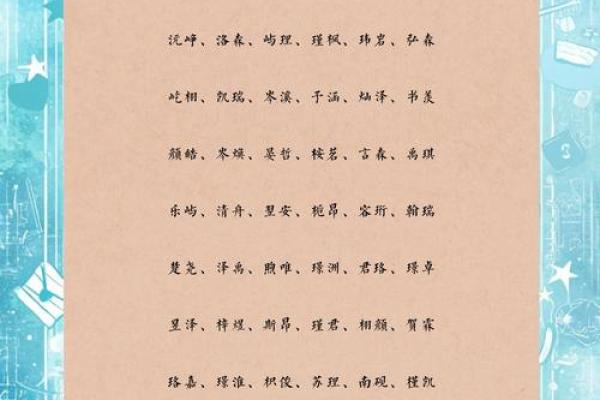 沅峥、洛森、屿理、瑾枫、玮岩、弘森
屹栩、凯瑞、岑溪、于涵、灿泽、书羡
颜皓、岑焕、晏哲、桉茗、言森、禹琪
乐屿、清舟、翌安、栀昂、容珩、翰瑞
楚尧、泽禹、煦唯、璟洲、君珞、璟卓
昱泽、梓煜、斯昂、瑾君、栩颜、贺霖
珞嘉、璟淮、枳俊、苏理、南砚、槿凯